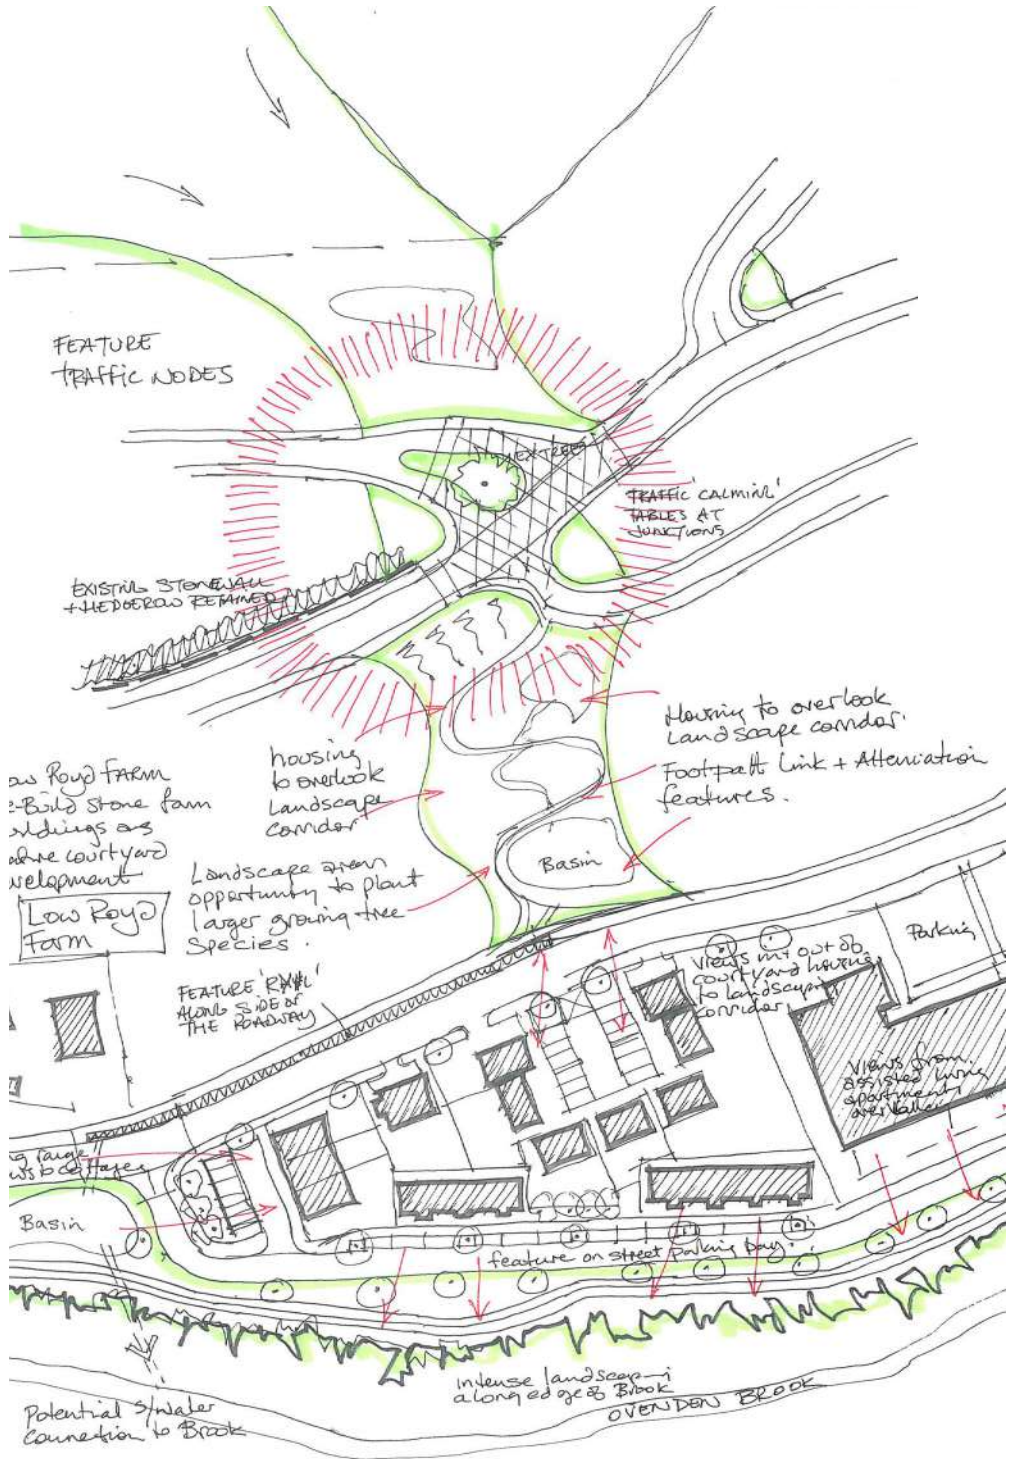 FEATURE
TRAFFIC NODES
EX TREE
'TRAFFIC CALMING'
TABLES AT
JUNCTIONS
EXISTING STONEWALL
+ HEDGEROW RETAINED
housing
to overlook
Landscape
corridor
Housing to overlook
Landscape corridor.
Footpath Link + Attenuation
features.
ow Royd FARM
e-Build stone farm
uildings as
courtyard
velopment
Low Royd
Farm
Landscape area
opportunity to plant
larger growing tree
species.
Basin
FEATURE 'RAIL'
ALONG SIDE OF
THE ROADWAY
Views in + out of
courtyard housing
to landscaping
corridor
Parking
Views from
assisted living
apartments
over Valley
ng range
ws to cottages
Basin
feature on street parking bay.
intense landscaping
along edge of Brook
OVENDEN BROOK
Potential s/water
connection to Brook